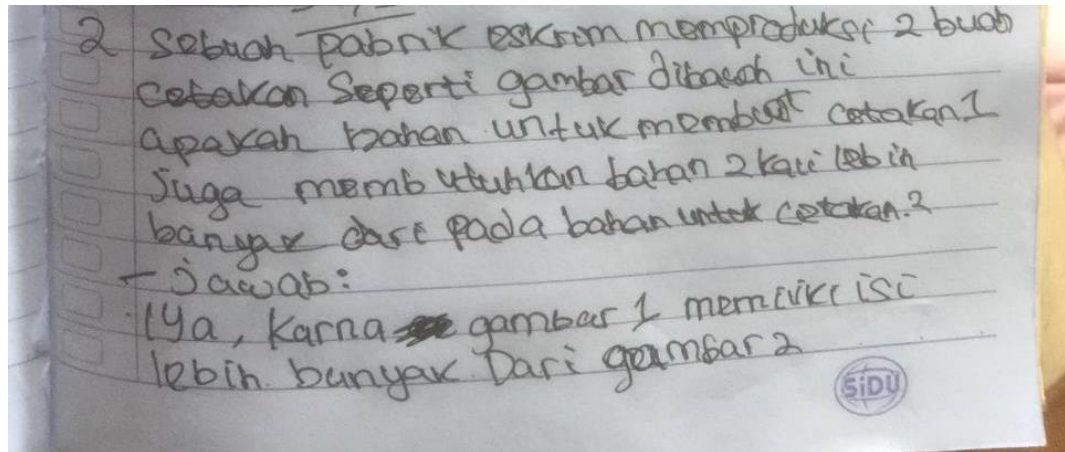 2 Sebuah Pabrik eskrim memproduksi 2 buah
cetakan Seperti gambar dibawah ini
apakah bahan untuk membuat cetakan 1
Juga membutuhkan bahan 2 kali lebih
banyak dari pada bahan untuk cetakan.2
- Jawab:
Iya, Karna gambar 1 memiliki isi
lebih banyak Dari gambar 2
SiDU